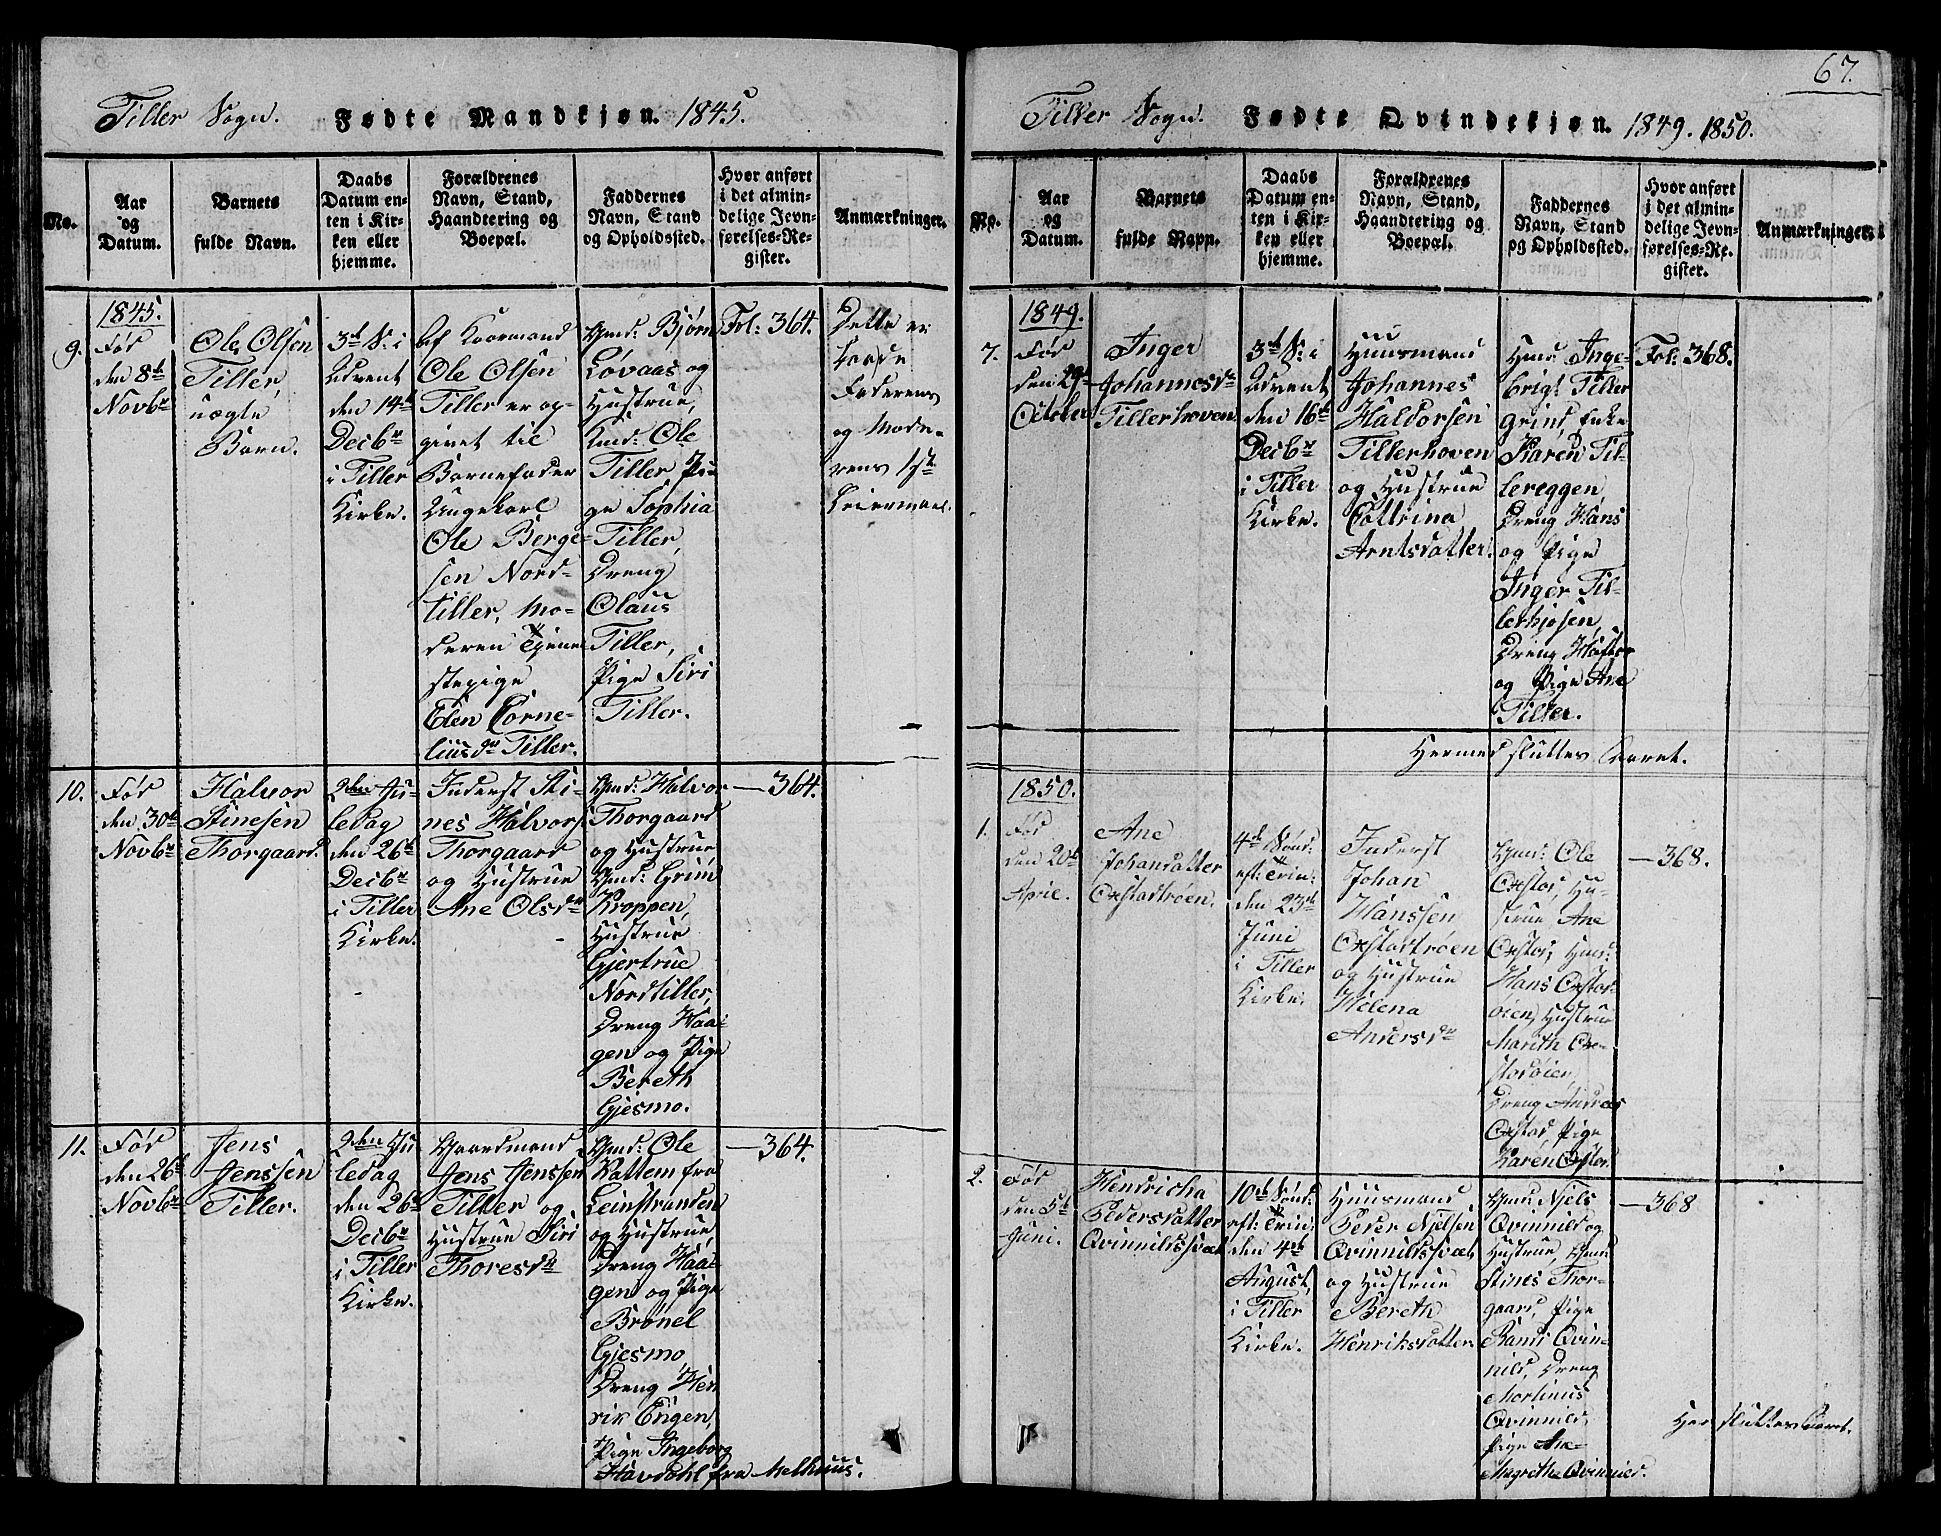 67.
Tiller Sogn. Fødte Mandkjøn. 1845.
No.
Aar
og
Datum.
Barnets
fulde Navn.
Daabs
Datum en-
ten i Kir-
ken eller
hjemme.
Forældrenes
Navn, Stand,
Haandtering og
Boepæl.
Faddernes
Navn, Stand
og Opholdssted.
Hvor anført
i det almin-
delige Jevn-
førelses-Re-
gister.
Anmærkninger.
9.
1845.
Fød
den 8de
Novbr
Ole Olsen
Tiller,
uægte
Barn.
3de S: i
Advent
den 14de
Decbr
i Tiller
Kirke.
Af Kaarmand
Ole Olsen
Tiller er op-
givet til
Barnefader
Ungekarl
Ole Berge-
sen Nord-
tiller, Mo-
deren Tjene
stepige
Elen Corne-
liusdr Tiller.
Gmd: Bjørn
Løvaas og
Hustrue,
Kmd: Ole
Tiller, Pi-
ge Sophia
Tiller,
Dreng
Olaus
Tiller,
Pige Siri
Tiller.
Fol: 364.
Dette er
Faderens
og Mode-
rens 1ste
Leiermaal.
10.
Fød
den 30te
Novbr
Halvor
Stinesen
Thorgaard.
2den Ju-
ledag
den 26de
Decbr
i Tiller
Kirke.
Inderst Sti-
nes Halvors
Thorgaard
og Hustrue
Ane Olsdr
Gmd: Halvor
Thorgaard
og Hustrue
Gmd: Grim
Kroppen,
Hustrue
Gjertrue
Nordtiller,
Dreng Haa-
gen og Pige
Bereth
Gjesmo.
— 364.
11.
Fød
den 26de
Novbr
Jens
Jenssen
Tiller.
2den Ju
ledag
den 26de
Decbr
i Tiller
Kirke.
Gaardmand
Jens Jenssen
Tiller og
Hustrue Siri
Thoresdr
Gmd: Ole
Kattem fra
Leinstranden
og Hustrue,
Dreng Haa-
gen og Pige
Brønel
Gjesmo,
Dreng Hen
rik Engen,
Pige Ingeborg
Havdahl fra Melhuus.
— 364.
Tiller Sogn. Fødte Qvindekjøn. 1849. 1850.
No.
Aar
og
Datum.
Barnets
fulde Navn.
Daabs
Datum en-
ten i Kir-
ken eller
hjemme.
Forældrenes
Navn, Stand,
Haandtering og
Boepæl.
Faddernes
Navn, Stand
og Opholdssted.
Hvor anført
i det almin-
delige Jevn-
førelses-Re-
gister.
Anmærkninger.
7.
1849.
Fød
den 29de
October
Inger
Johannesdr
Tillerhoven
3de S: i
Advent
den 16de
Decbr
i Tiller
Kirke.
Huusmand
Johannes
Haldorsen
Tillerhoven
og Hustrue
Cattrina
Arntsdatter.
Hmd: Inge-
brigt Tiller
grind, Enke
Karen Til-
lereggen,
Dreng Hans
og Pige
Inger Til-
lerhjøsen,
Dreng
og Pige Ane
Tiller.
Fol: 368.
Hermed sluttes Aaret.
1850.
1.
Fød
den 20de
April.
Ane
Johansdatter
Oxstadtrøen.
4de Sønd:
eft: Trin:
den 23de
Juni
i Tiller
Kirke.
Inderst
Johan
Hanssen
Oxstadtrøen
og Hustrue
Helena
Andersdr
Gmd: Ole
Oxstad, Hu-
strue Ane
Oxstad, Hmd:
Hans Oxstad-
øien, Hustrue
Marith Ox-
stadøien,
Dreng Andreas
Oxstad, Pige
Karen Oxstad.
— 368.
2.
Fød
den 5te
Juni.
Hendricha
Pedersdatter
Qvinnildssvæt
10de Sønd:
eft: Trin:
den 4de
August,
i Tiller
Kirke.
Huusmand
Peder Njelsen
Qvinnildssvæt,
og Hustrue
Bereth
Henriksdatter.
Gmd: Njels
Qvinnild og
Hustrue, Gmd
Stines Thor-
gaard, Pige
Randi Qvin-
nild, Dreng
Martinus
Qvinnild,
Pige Ane
Magrethe Qvinnild.
— 368
Her sluttes Aaret.